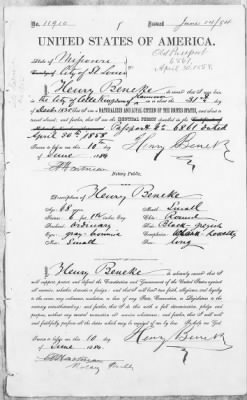 No. 11910
Issued June 14/84
UNITED STATES OF AMERICA.
Old Passport
6861,
April 30, 1858
State of Missouri
City of St Louis
I, Henry Beneke do swear that I was born
in the City of Celle Kingdom of Hannover on the 31st day
of 18 that I am a NATURALIZED AND LOYAL CITIZEN OF THE UNITED STATES, and about to
travel abroad; and further, that I am the IDENTICAL PERSON described in the
Passport No 6861 dated
April 30th 1858
Sworn to before me this 10th day
of June 1884
Henry Beneke
Notary Public.
Description of Henry Beneke
Age: 68 years
Mouth: Small
Stature: feet inches Eng.
Chin: Round
Forehead: ordinary
Hair:
Eyes: gray
Complexion:
Nose: Small
Face: long
I, Henry Beneke do solemnly swear that I
will support, protect and defend the Constitution and Government of the United States against
all enemies, whether domestic or foreign; and that I will bear true faith, allegiance, and loyalty
to the same, any ordinance, resolution, or law of any State, Convention, or Legislature to the
contrary notwithstanding; and further, that I do this with a full determination, pledge and
purpose, without any mental reservation or evasion whatsoever; and further, that I will well
and faithfully perform all the duties which may be required of me by law: So help me God
Sworn to before me this 10 day
of June 1884
Henry Beneke
Notary Public